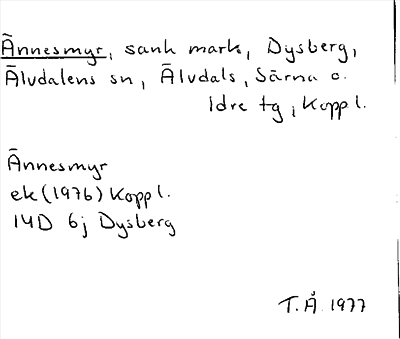 Ännesmyr, sank mark, Dysberg,
Älvdalens sn, Älvdals, Särna o.
Idre tg, Koppl.
Ännesmyr
ek (1976) Koppl.
14D 6j Dysberg
T.Å 1977